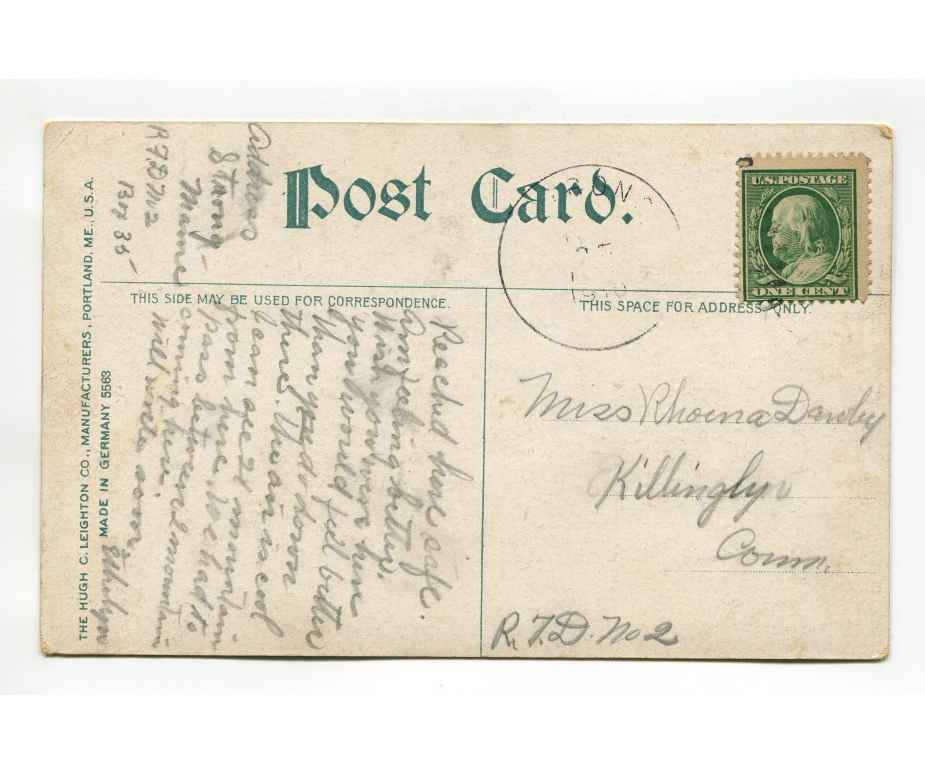 Post Card.
THIS SIDE MAY BE USED FOR CORRESPONDENCE.
THIS SPACE FOR ADDRESS ONLY.
U.S. POSTAGE
ONE CENT
RON
1910
Address
Strong
Maine
R F D No 2
Box 35
Reached here safe.
Am feeling better.
Wish you were here
you would feel better
than you do down
there. The air is cool
can see 21 mountain
from here. We had to
pass between mountain
coming here.
will write soon,
Ethelyn
Miss Rhoena Danby
Killingly
Conn.
R. F. D. No 2
THE HUGH C. LEIGHTON CO., MANUFACTURERS, PORTLAND, ME., U.S.A.
MADE IN GERMANY 5563